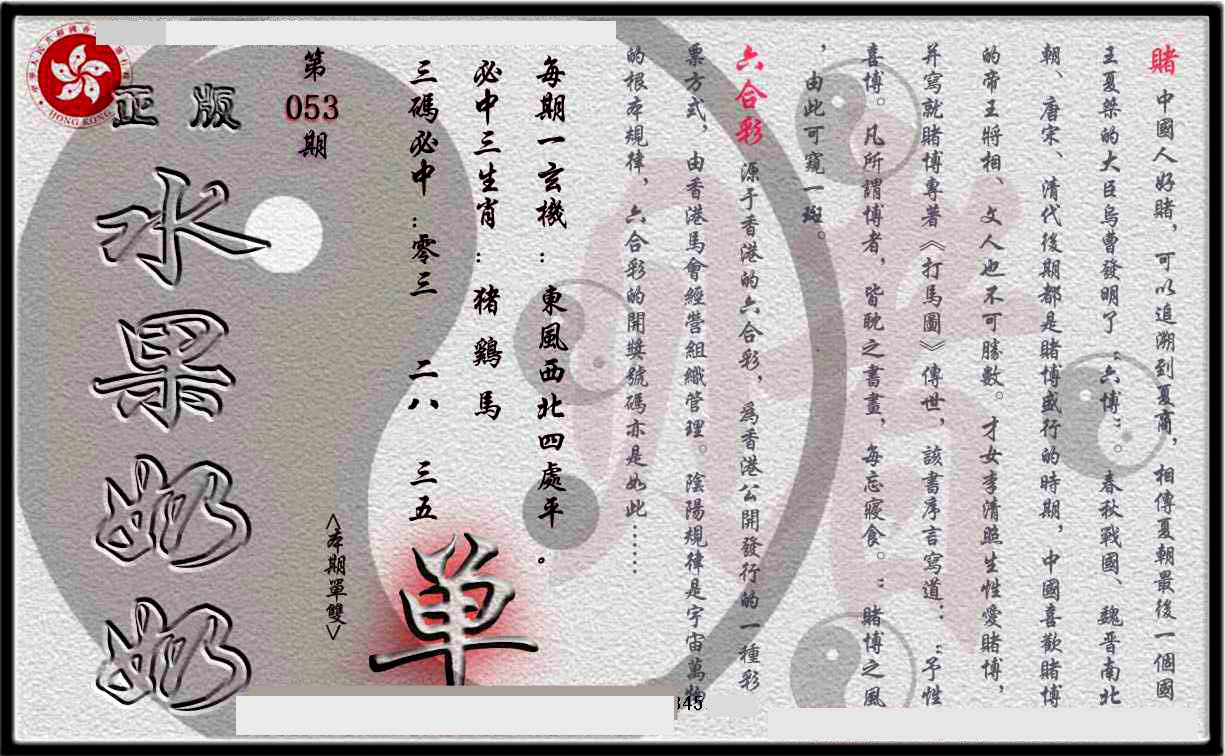 賭 中國人好賭，可以追溯到夏商，相傳夏朝最後一個國
王夏桀的大臣烏曹發明了“六博”。春秋戰國、魏晋南北
朝、唐宋、清代後期都是賭博盛行的時期，中國喜歡賭博
的帝王將相、文人也不可勝數。才女李清照生性愛賭博，
并寫就賭博專著《打馬圖》傳世，該書序言寫道：“予性
喜博。凡所謂博者，皆耽之晝書，每忘寢食。”賭博之風
，由此可窺一斑。
六合彩 源于香港的六合彩，為香港公開發行的一種彩
票方式，由香港馬會經營組織管理。陰陽規律是宇宙萬物
的根本規律，六合彩的開獎號碼亦是如此……
每期一玄機：東風西北四處平。
必中三生肖：猪鷄馬
三碼必中：零三 二八 三五
单
<本期單雙>
第
053
期
正版
水果奶奶
HONG KONG
345